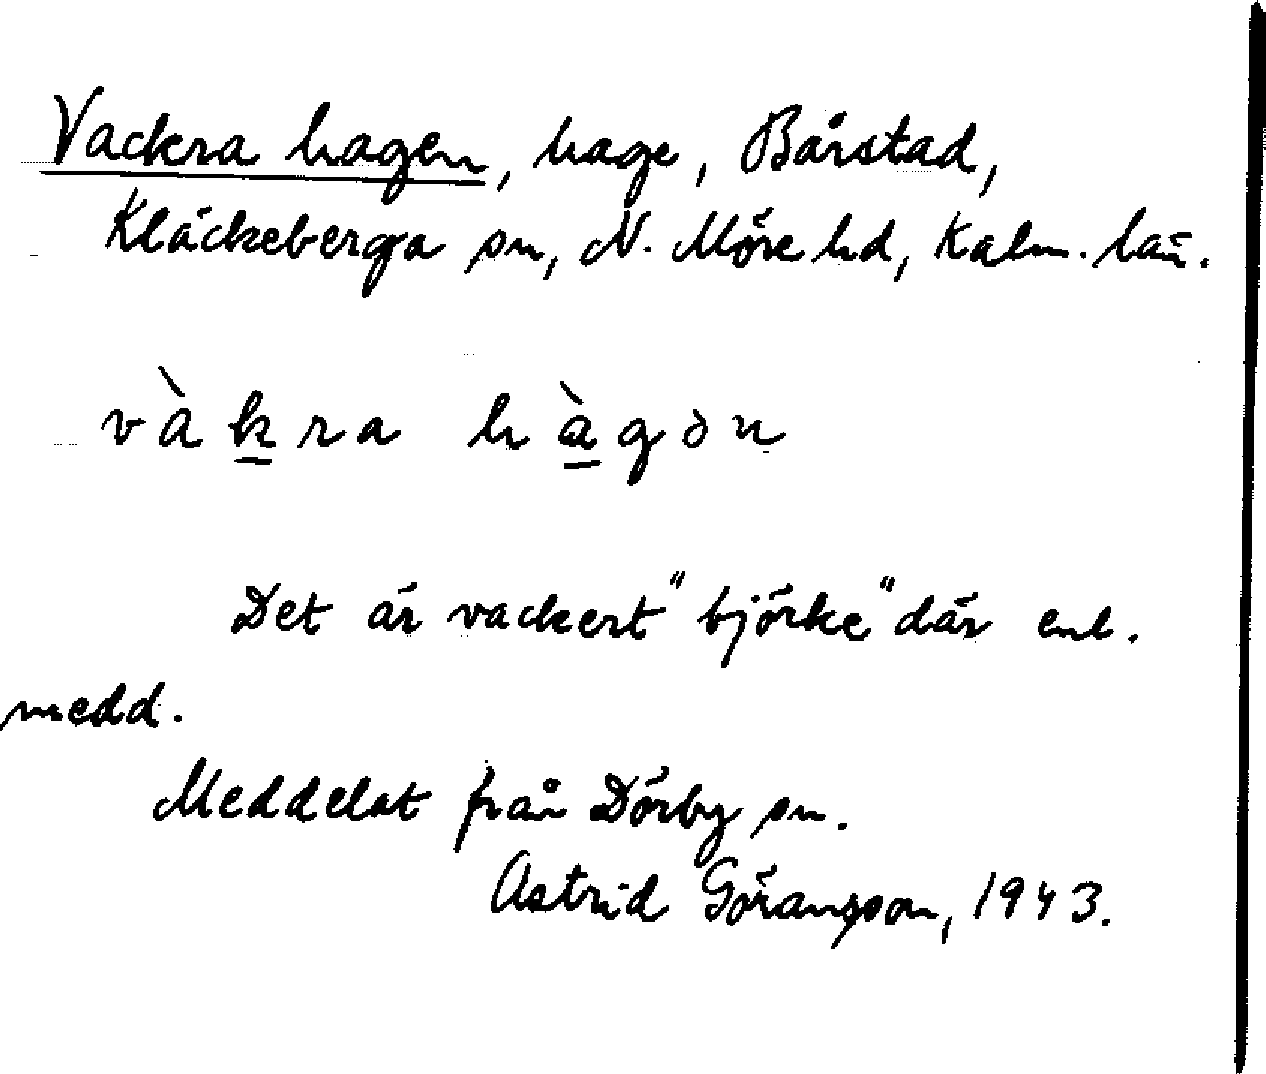 Vackra hagen, hage, Bårstad,
Kläckeberga sn, N. Möre hd, Kalm. län.
vàkra hàgən
Det är vackert "björke" där enl.
medd.
Meddelat från Dörby sn.
Astrid Göransson, 1943.